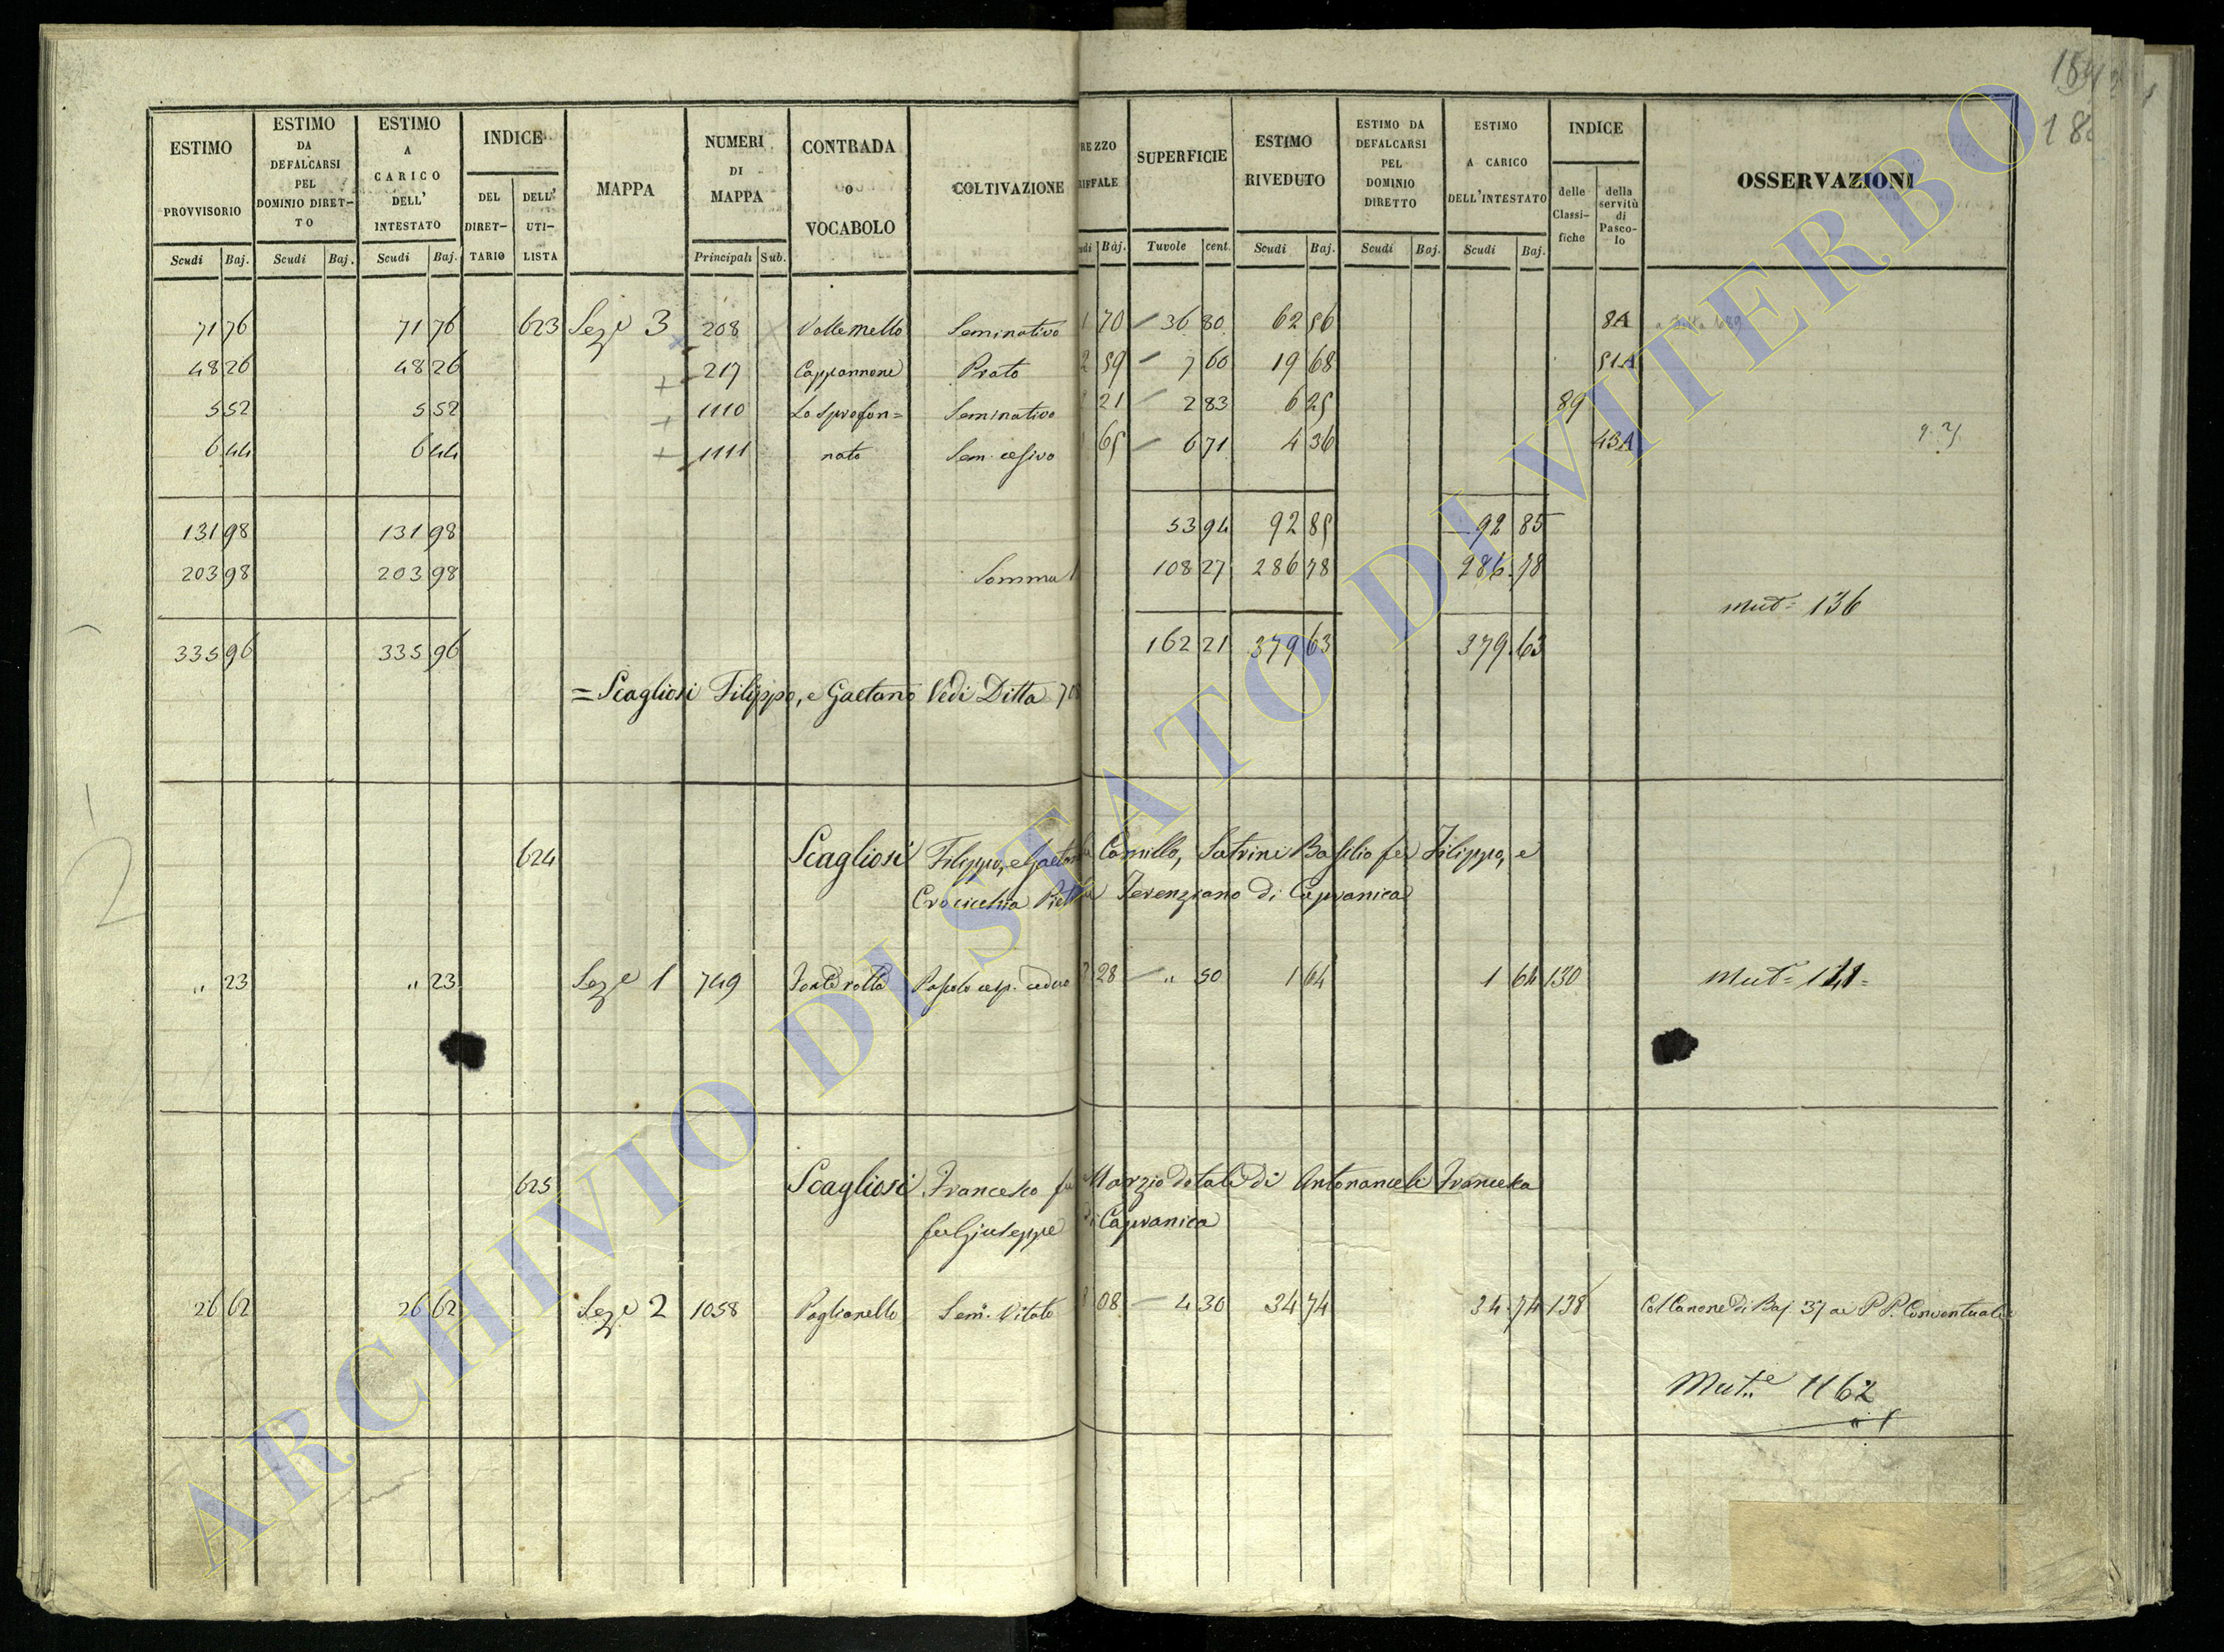 184
18
ESTIMO PROVVISORIO Scudi Baj. ESTIMO DA DEFALCARSI PEL DOMINIO DIRET-TO Scudi Baj. ESTIMO A CARICO DELL' INTESTATO Scudi Baj. INDICE DEL DIRET-TARIO DELL' UTI-LISTA MAPPA NUMERI DI MAPPA Principali Sub. CONTRADA O VOCABOLO COLTIVAZIONE REZZO RIFFALE udi Baj. SUPERFICIE Tavole cent. ESTIMO RIVEDUTO Scudi Baj. ESTIMO DA DEFALCARSI PEL DOMINIO DIRETTO Scudi Baj. ESTIMO A CARICO DELL'INTESTATO Scudi Baj. INDICE delle Classi-fiche della servitù di Pasco-lo OSSERVAZIONI
71 76 71 76 623 Sez.e 3 208 Valle mello Seminativo 1 70 36 80 62 56 8A a Ditta 689
48 26 48 26 217 Cappannone Prato 2 59 7 60 19 68 51A
5 52 5 52 1110 Lo Sprofon= Seminativo 21 2 83 6 25 89
6 44 6 44 1111 nato Sem. cesivo 65 6 71 4 36 43A
131 98 131 98 53 94 92 85 92 85
203 98 203 98 Somma 108 27 286 78 286 78
Mut= 136
335 96 335 96 162 21 379 63 379 63
= Scagliosi Filippo, e Gaetano Vedi Ditta 708
624 Scagliosi Filippo, e Gaetano Camillo, Satrini Basilio fu Filippo, e
Crocicchia Pietro Terenziano di Capranica
" 23 " 23 Sez.e 1 749 Fonte rotta Pascolo cesp. ceduo 3 28 " 50 1 64 1 64 130 Mut= 141=
625 Scagliosi Francesco fu Marzio dotale di Antonangeli Francesca
fu Giuseppe di Capranica
26 62 26 62 Sez.e 2 1058 Paglianello Sem. Vitato 08 4 30 34 74 34 74 138 Col Canone di Baj. 37 ai P. P. Conventuali
Mut.e 1162